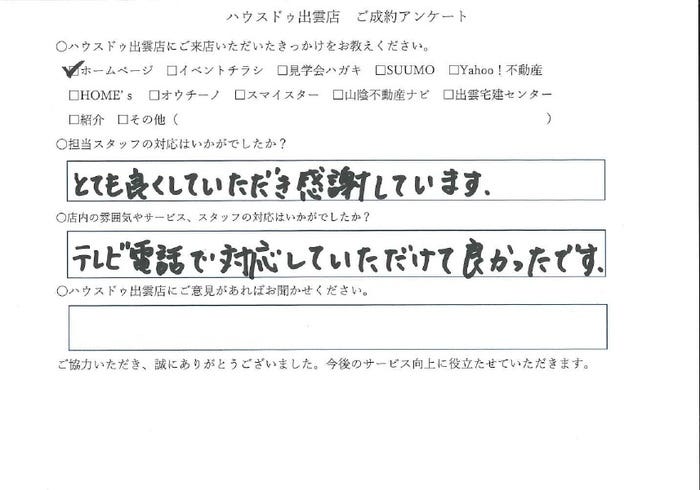 ハウスドゥ出雲店 ご成約アンケート
○ハウスドゥ出雲店にご来店いただいたきっかけをお教えください。
☑ホームページ □イベントチラシ □見学会ハガキ □SUUMO □Yahoo！不動産
□HOME's □オウチーノ □スマイスター □山陰不動産ナビ □出雲宅建センター
□紹介 □その他（ ）
○担当スタッフの対応はいかがでしたか？
とても良くしていただき感謝しています.
○店内の雰囲気やサービス、スタッフの対応はいかがでしたか？
テレビ電話で対応していただけて良かったです.
○ハウスドゥ出雲店にご意見があればお聞かせください。
ご協力いただき、誠にありがとうございました。今後のサービス向上に役立たせていただきます。